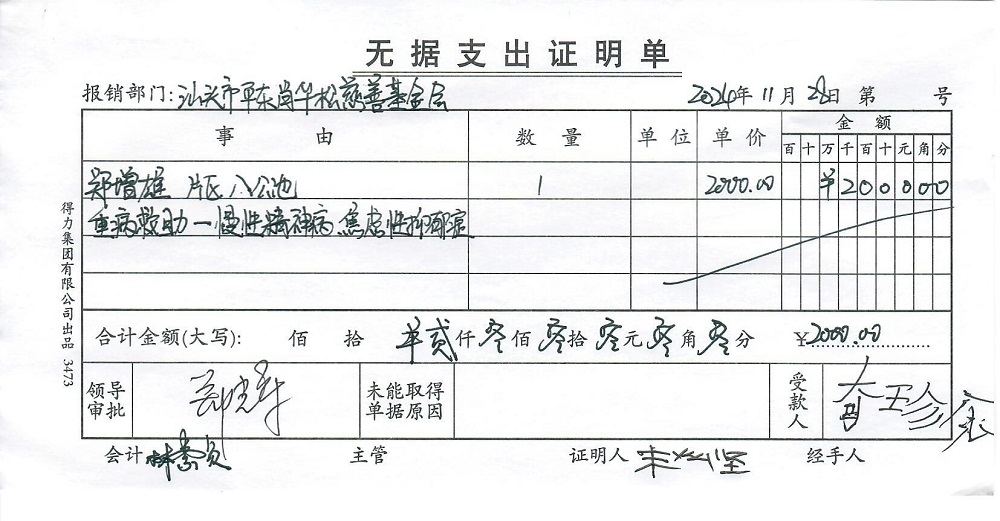 无据支出证明单
报销部门: 汕头市平东肖华松慈善基金会 2024年11月28日 第 号
事由 数量 单位 单价 金额
百十万千百十元角分
郑增雄 片区 八公池 1 2000.00 ¥200000
重病救助—慢性精神病 焦虑性抑郁症
合计金额(大写): 佰 拾 羊贰仟零佰零拾零元零角零分 ¥2000.00
领导审批 未能取得单据原因 受款人
会计 林 主管 证明人 坚 经手人
得力集团有限公司出品 3473